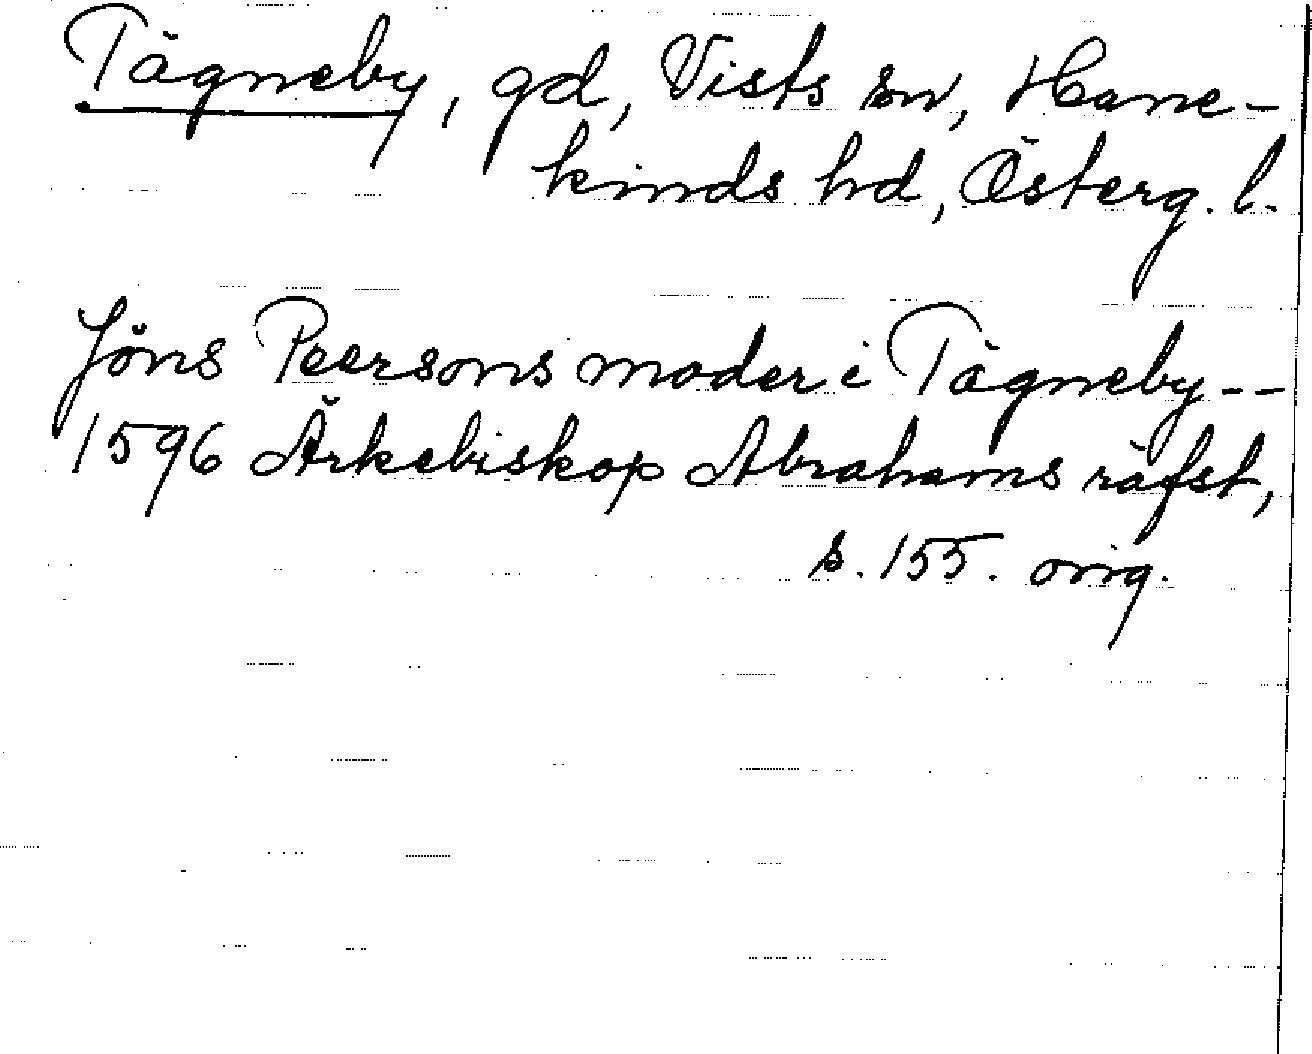 Tägneby, gd, Vists sn, Hane-
kinds hd, Österg. l.
Jöns Peersons moder i Tägneby --
1596 Ärkebiskop Abrahams räfst,
s. 155. orig.